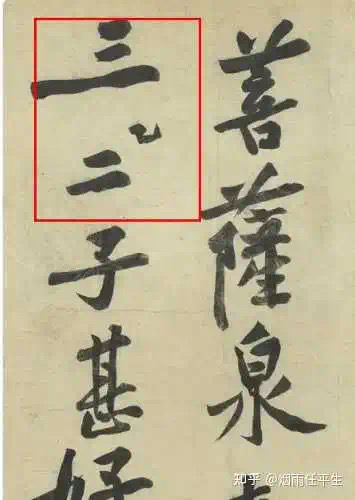 菩薩泉
三乙二子甚好
知乎 @烟雨任平生